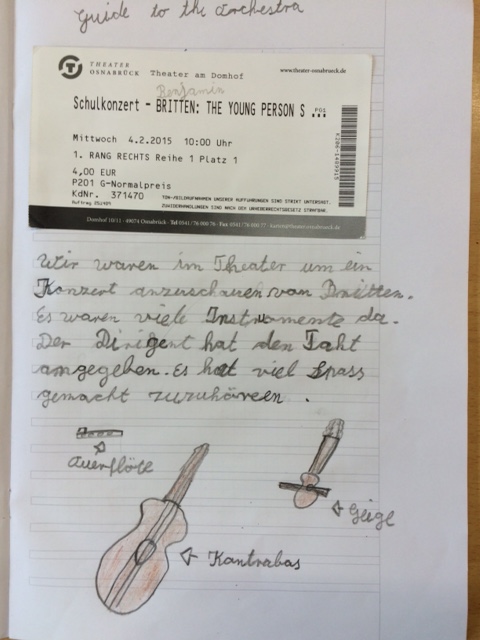 Guide to the Orchestra
THEATER
OSNABRÜCK Theater am Domhof www.theater-osnabrueck.de
Benjamin
Schulkonzert - BRITTEN: THE YOUNG PERSON S ...
PG1
Mittwoch 4.2.2015 10:00 Uhr
1. RANG RECHTS Reihe 1 Platz 1
4,00 EUR
P201 G-Normalpreis
KdNr. 371470
TON-/BILDAUFNAHMEN UNSERER AUFFÜHRUNGEN SIND STRIKT UNTERSAGT.
ZUWIDERHANDLUNGEN SIND NACH DEM URHEBERRECHTSGESETZ STRAFBAR.
Domhof 10/11 · 49074 Osnabrück · Tel 0541/76 000 76 · Fax 0541/76 000 77
Wir waren im Theater um ein
Konzert anzuschauen von Britten.
Es waren viele Instrumente da.
Der Dirigent hat den Taht
angegeben. Es hat viel Spass
gemacht zuzuhöreen .
Querflöte
Geige
Kontrabas